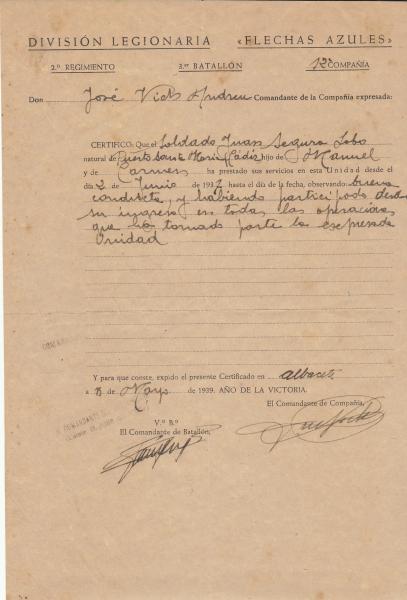 DIVISIÓN LEGIONARIA «FLECHAS AZULES»
2.º REGIMIENTO 3.er BATALLÓN 12ª COMPAÑÍA
Don José Andreu Comandante de la Compañía expresada:
CERTIFICO: Que el Soldado Juan Segura Lobo
natural de Puerto Santa María Cádiz hijo de Manuel
y de Carmen ha prestado sus servicios en esta Unidad desde el
día 2 de Junio de 1937 hasta el día de la fecha, observando: buena
conducta, y habiendo participado desde
su ingreso en todas las operaciones
que ha tomado parte la expresada
Unidad
Y para que conste, expido el presente Certificado en Albacete
a 8 de Mayo de 1939. AÑO DE LA VICTORIA.
El Comandante de Compañía,
V.º B.º
El Comandante de Batallón,